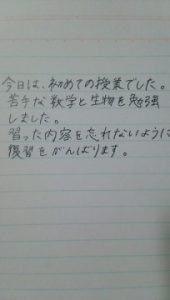 今日は、初めての授業でした。
苦手な数学と生物を勉強
しました。
習った内容を忘れないように
復習をがんばります。